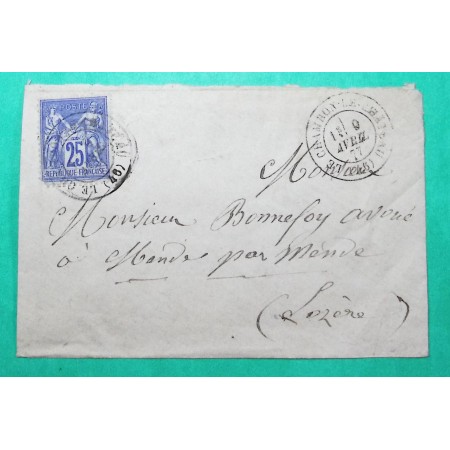 POSTE
25
REPUBLIQUE FRANCAISE
LE CHAMBON-LE-CHATEAU (46)
1E
9
AVRIL
77
Monsieur Bonnefoy avoué
à Mende par Mende
(Lozère)